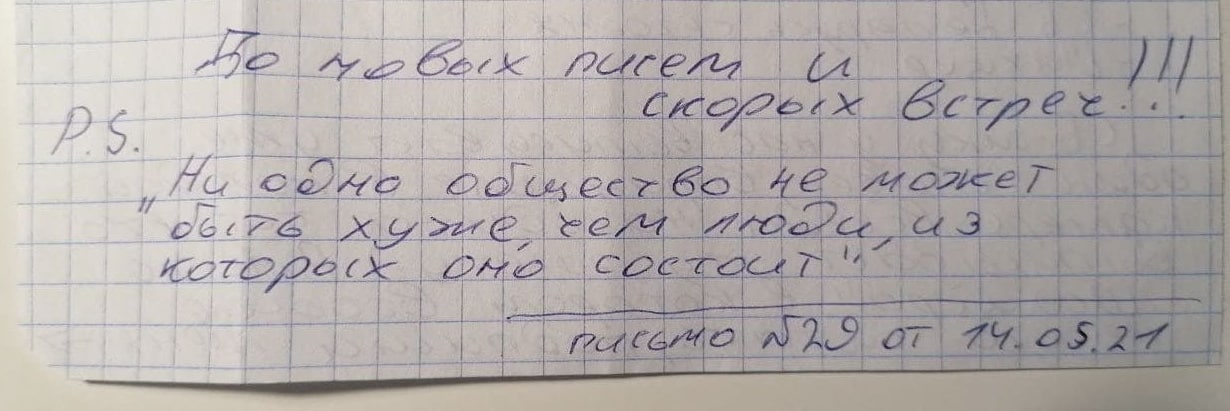 До новых писем и
скорых встреч!!!
P.S.
„Ни одно общество не может
быть хуже, чем люди, из
которых оно состоит“
письмо №29 от 14.05.21